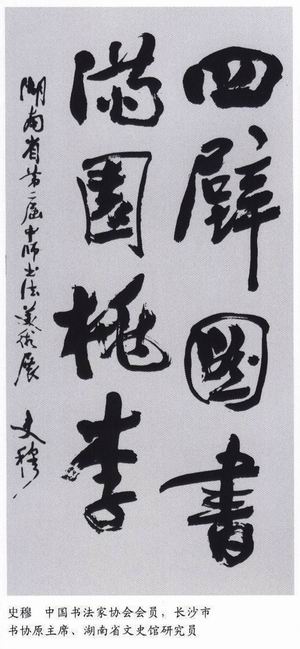 四壁图書
满園桃李
湖南省第二届中师书法美術展
史穆
史穆 中国书法家协会会员，长沙市
书协原主席、湖南省文史馆研究员